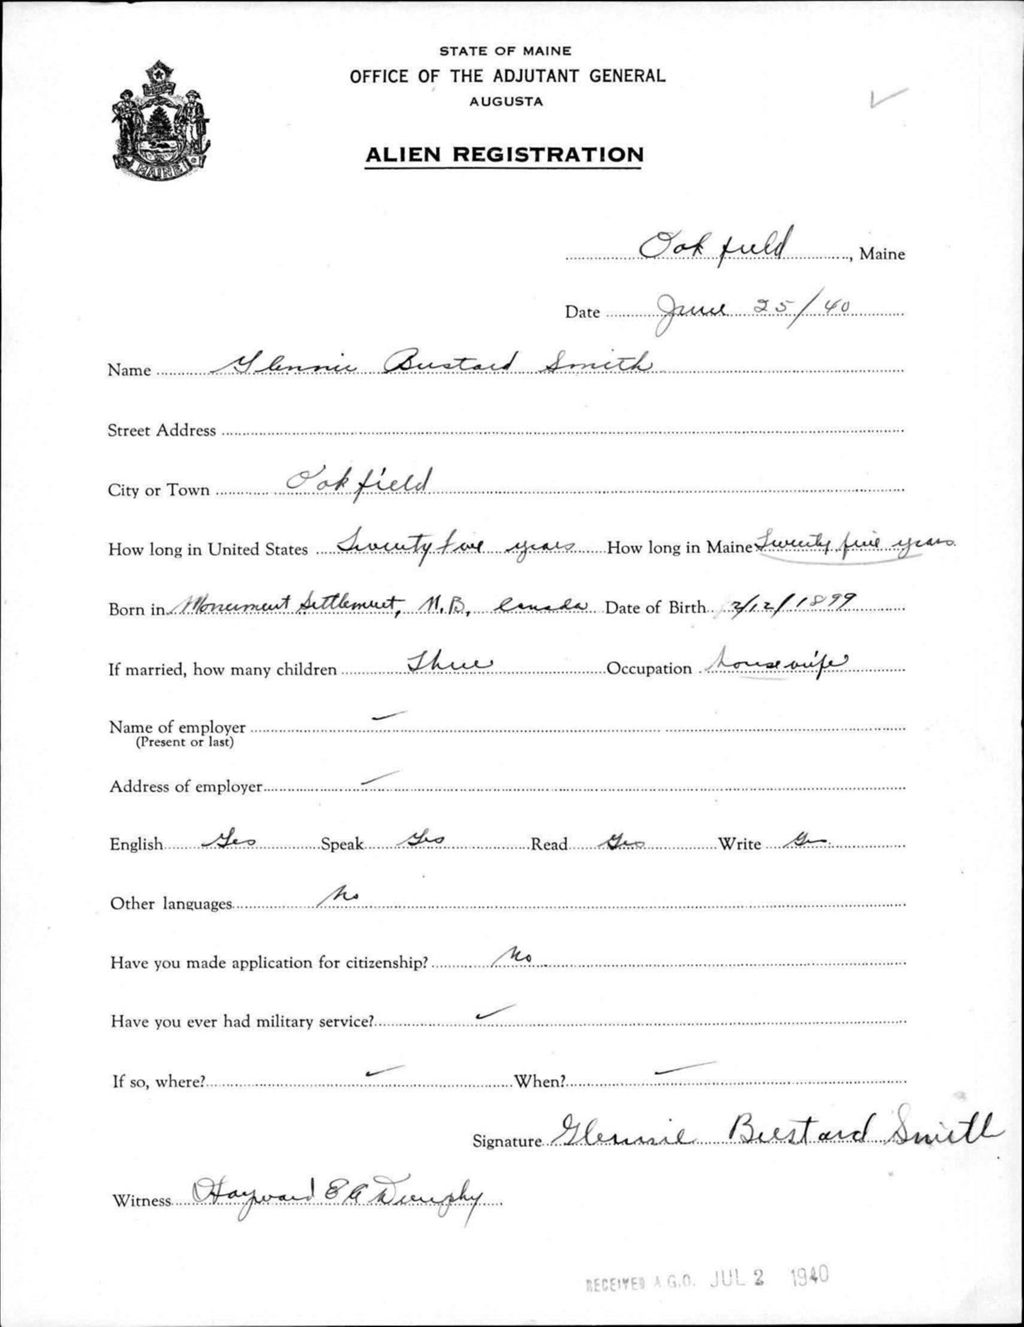 STATE OF MAINE
OFFICE OF THE ADJUTANT GENERAL
AUGUSTA
ALIEN REGISTRATION
MAINE
Oakfield, Maine
Date June 25/40
Name Glennie Bustard Smith
Street Address
City or Town Oakfield
How long in United States Twenty five years How long in Maine Twenty five years
Born in Monument Settlement, N.B, Canada Date of Birth 2/12/1899
If married, how many children Three Occupation housewife
Name of employer
(Present or last)
Address of employer
English Yes Speak Yes Read Yes Write Yes
Other languages No
Have you made application for citizenship? No
Have you ever had military service?
If so, where? When?
Signature Glennie Bustard Smith
Witness Hayward Dunphy
RECEIVED A.G.O. JUL 2 1940